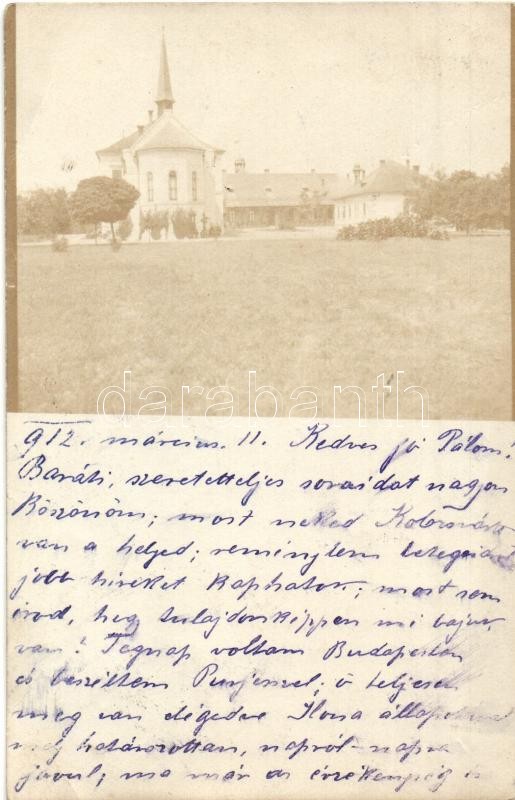 darabanth
912. március. 11. Kedves jó Pálom!
Baráti, szeretetteljes soraidat nagyon
köszönöm; most neked
van a helyed; reménylem
jobb hireket kaphatok; most sem
irod, hogy tulajdonképpen mi bajuk
van! Tegnap voltam Budapesten
és beszéltem; ő teljesen
meg van elégedve Ilona állapotával
még határozottan, napról-napra
javul; ma már az érzékenység is